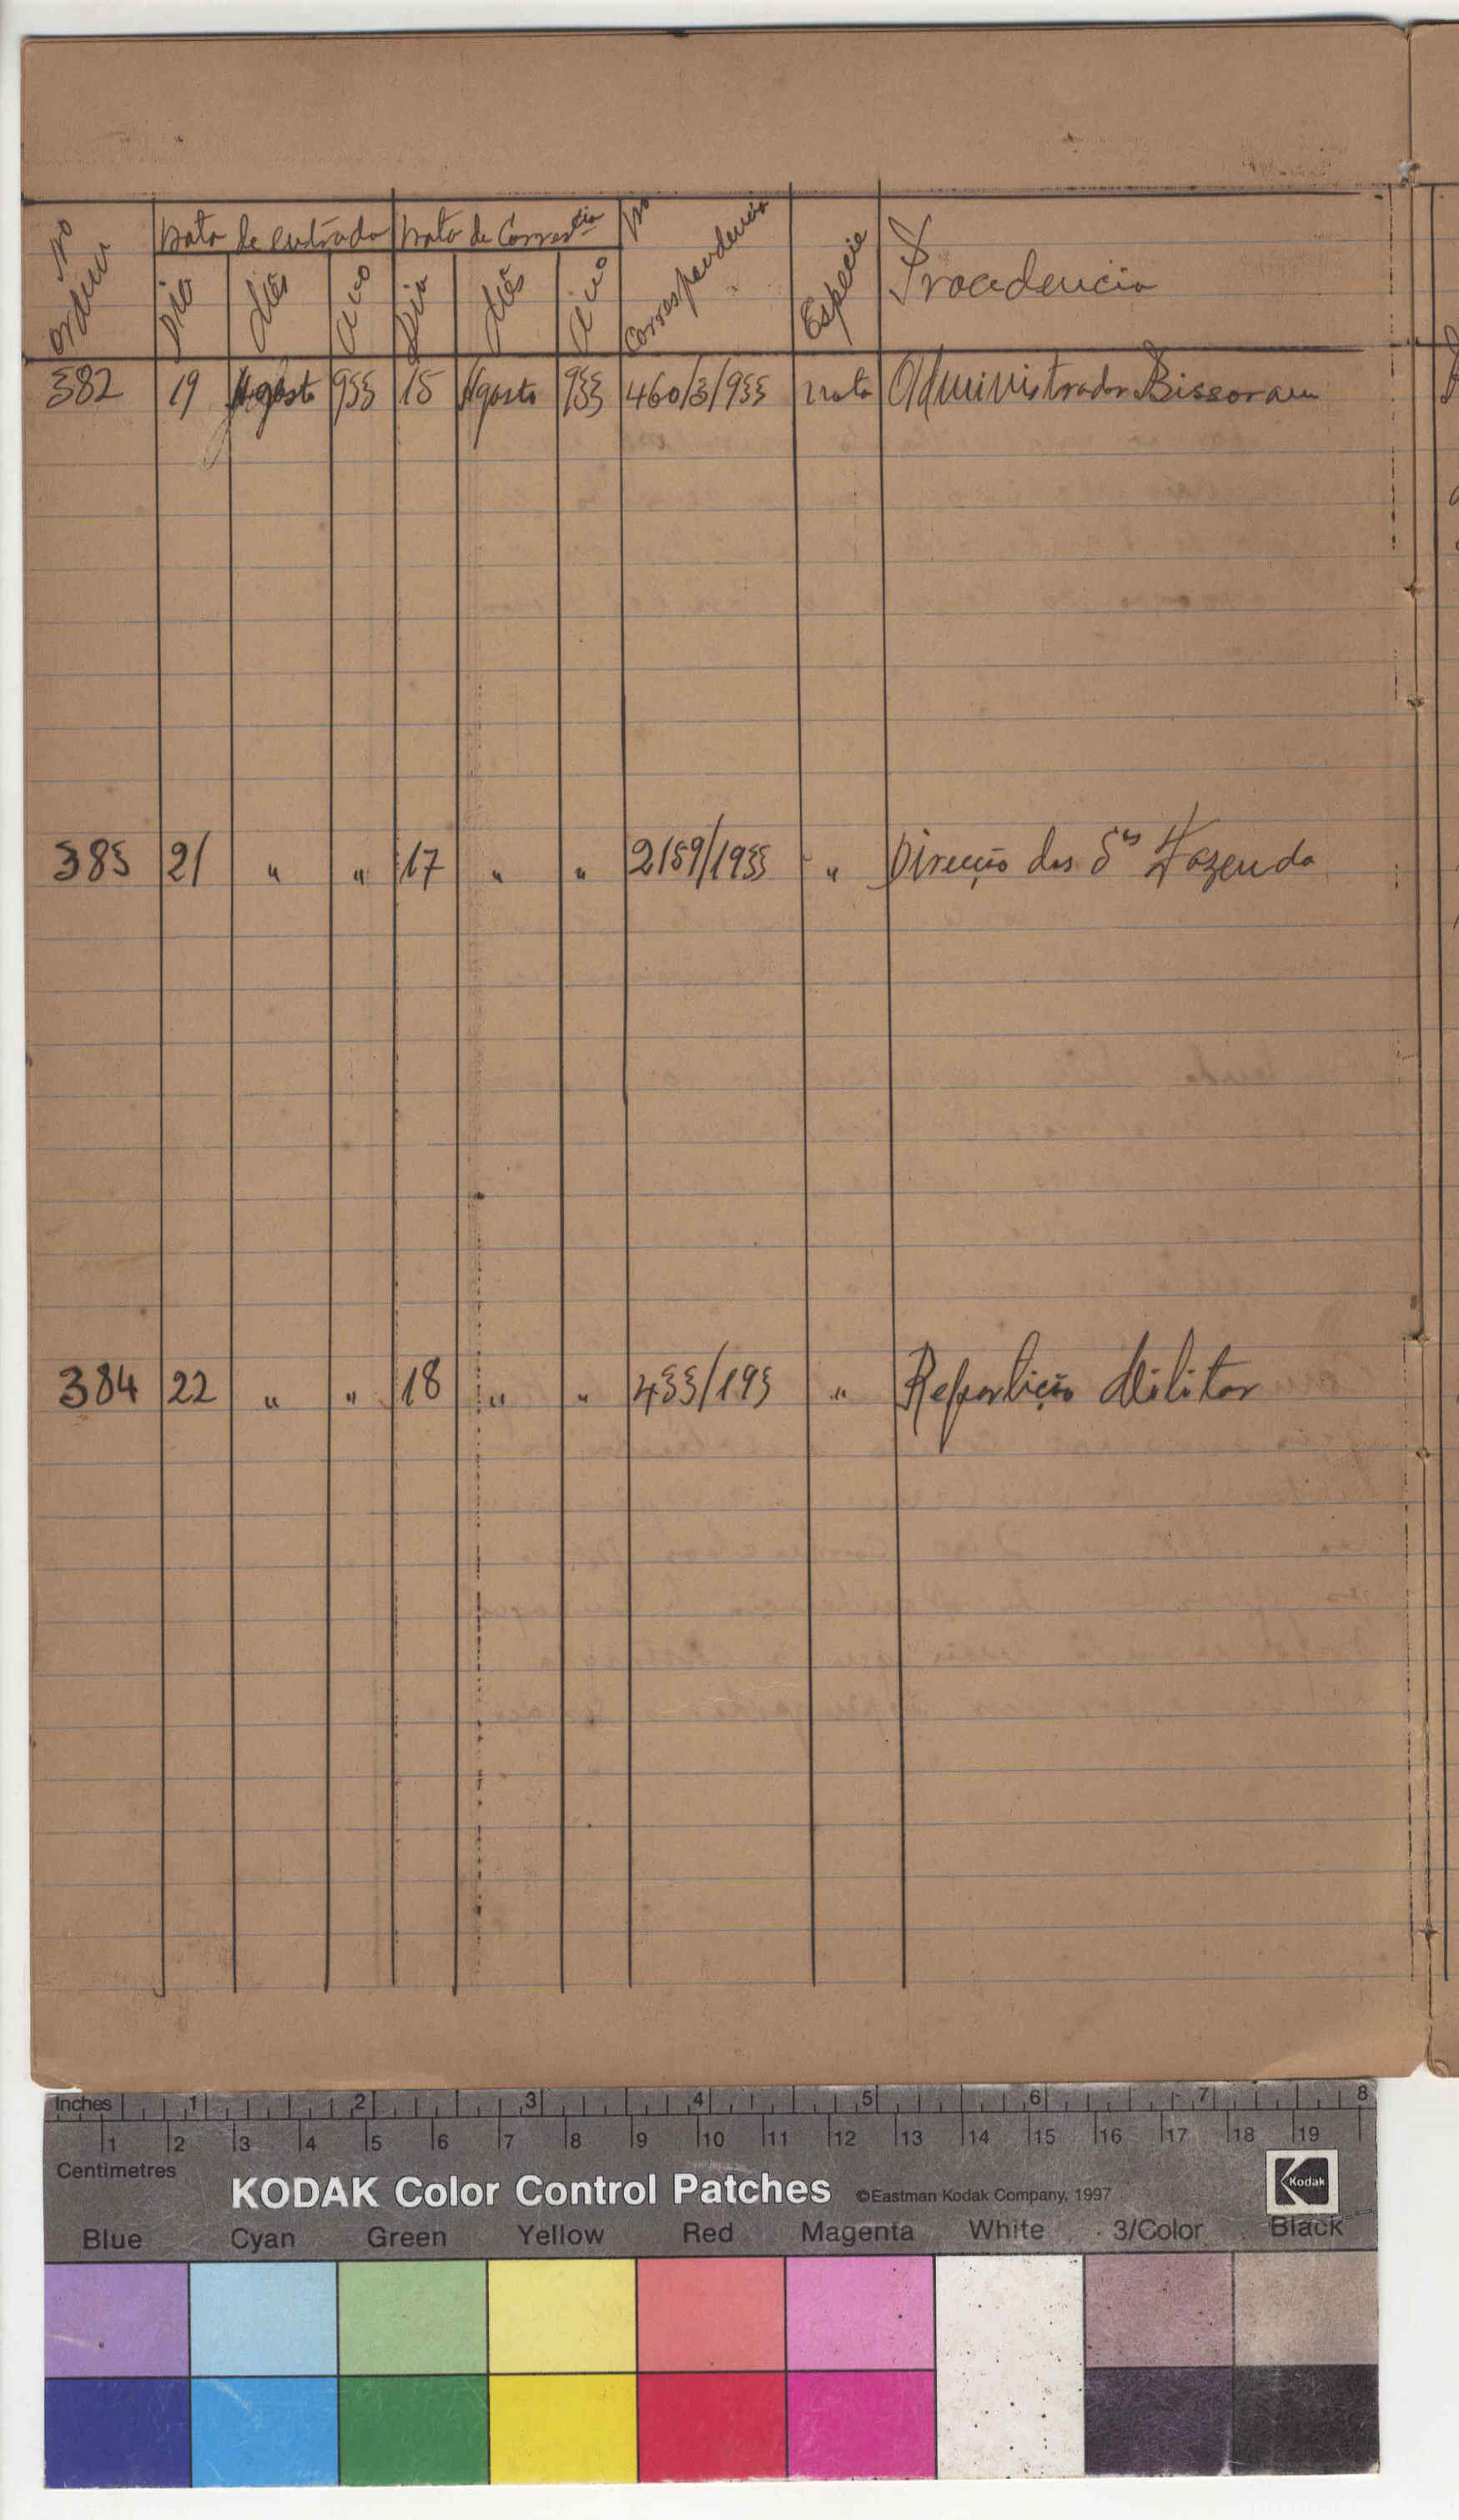 No ordem Data de entrada Data de Corres.cia No Correspondencia Especie Procedencia
Dia Mês Ano Dia Mês Ano
382 19 Agosto 933 15 Agosto 933 460/3/933 Nota Administrador Bissoram
383 21 " " 17 " " 2159/1933 " Direcção dos S.os Fazenda
384 22 " " 18 " " 433/193 " Repartição Militar
Inches 1 2 3 4 5 6 7 8
1 2 3 4 5 6 7 8 9 10 11 12 13 14 15 16 17 18 19
Centimetres
KODAK Color Control Patches ©Eastman Kodak Company, 1997 Kodak
Blue Cyan Green Yellow Red Magenta White 3/Color Black